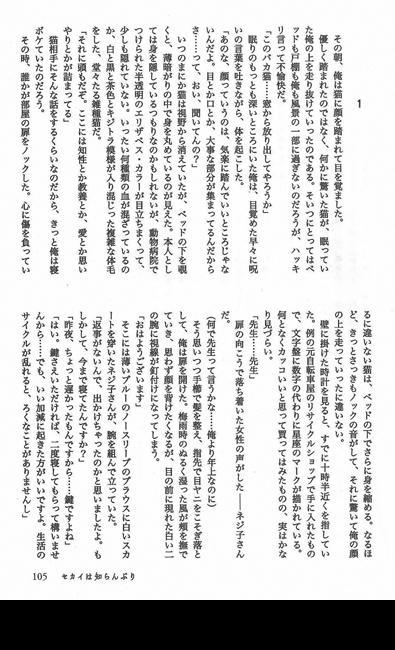 1
その朝、俺は猫に顔を踏まれて目を覚ました。
優しく踏まれたのではなく、何かに驚いた猫が、眠ってい
た俺の上を走り抜けていったのである。そいつにとってはベ
ッドも戸棚も俺も風景の一部に過ぎないのだろうが、ハッキ
リ言って不愉快だ。
「このバカ猫……窓から放り出してやろうか」
眠りのもっとも深いところにいた俺は、目覚めた早々に呪
いの言葉を吐きながら、体を起こした。
「あのな、顔っていうのは、気楽に踏んでいいところじゃな
いんだよ。目とか口とか、大事な部分が集まってるんだから
さ……って、おい、聞いてんの？」
いつのまにか猫は視野から消えていたが、ベッドの下を覗
くと、薄暗がりの中で身を丸めているのが見えた。本人とし
ては身を隠しているつもりなのかもしれないが、動物病院で
つけられた半透明のエリザベス・カラーが目立ちまくって、
少しも隠れていない。いったい何種類の血が混ざっているの
か、白と黒と茶色とキジトラ模様が入り混じった複雑な体毛
をした、堂々たる雑種猫だ。
「それに頭もだぞ。ここには知性とか教養とか、愛とか思い
やりとかが詰まってる」
猫相手にそんな話をするくらいなのだから、きっと俺は寝
ボケていたのだろう。
その時、誰かが部屋の扉をノックした。心に傷を負ってい
るに違いない猫は、ベッドの下でさらに身を縮める。なるほ
ど、きっとさっきもノックの音がして、それに驚いて俺の顔
の上を走っていったに違いない。
壁に掛けた時計を見ると、すでに十時半近くを指してい
た。例の元自転車屋のリサイクルショップで手に入れたもの
で、文字盤に数字の代わりに星座のマークが描かれている。
何となくカッコいいと思って買ってはみたものの、実はかな
り見づらい。
「先生……先生」
扉の向こうで落ち着いた女性の声がした――ネジ子さん
だ。
（何で先生って言うかな……俺より年上なのに）
そう思いつつ手櫛で髪を整え、指先で目ヤニをこそぎ落と
して、俺は扉を開けた。梅雨時のぬるく湿った風が頬を撫で
ていき、思わず顔を背けたくなるが、目の前に現れた白い二
の腕に視線が釘付けになってしまう。
「おはようございます」
そこには薄いブルーのノースリーブのブラウスに白いスカ
ートを穿いたネジ子さんが、腕を組んで立っていた。
「返事がないんで、出かけちゃったのかと思いましたよ。も
しかして、今まで寝てたんですか？」
「昨夜、ちょっと遅かったもんですから……鍵ですよね」
「はい。鍵さえいただければ、二度寝してもらって構いませ
んから……でも、いい加減に起きた方がいいですよ。生活の
サイクルが乱れると、ろくなことがありませんし」
105 セカイは知らんぷり